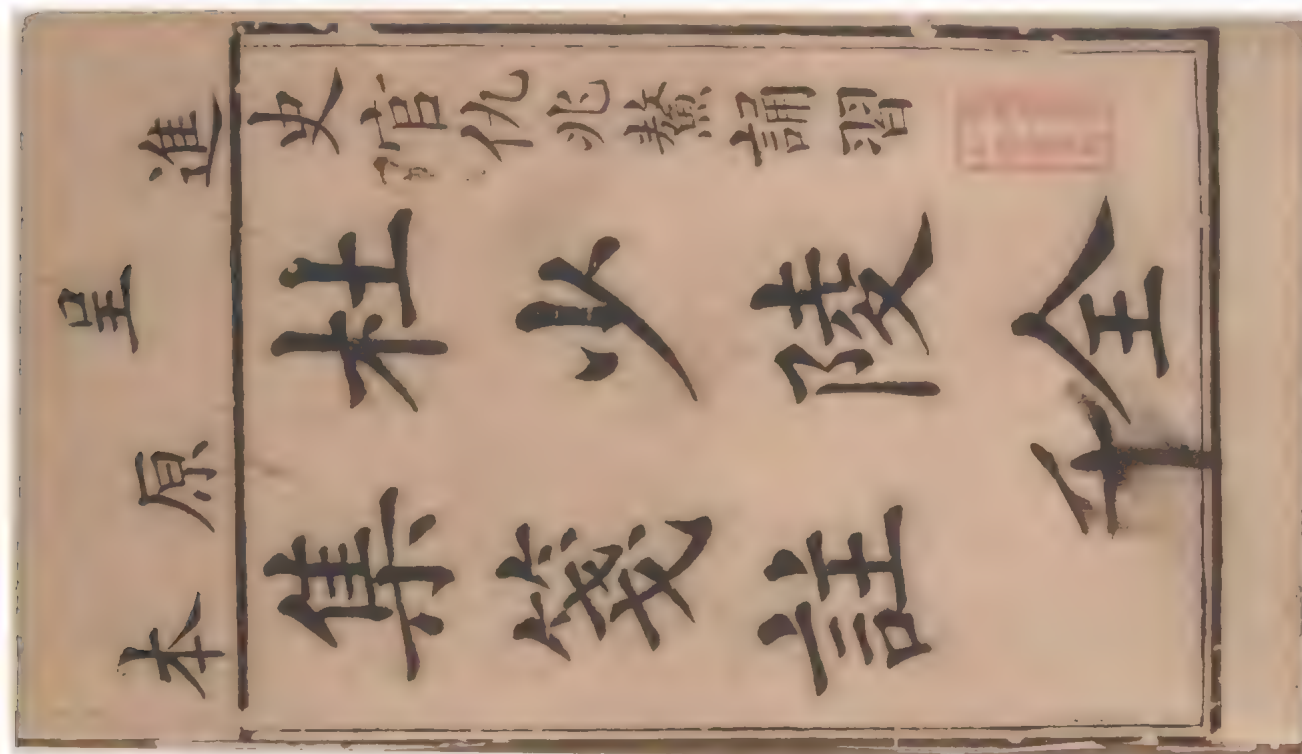 進呈原本
史官仇兆鰲誦習
杜少陵全
集箋註